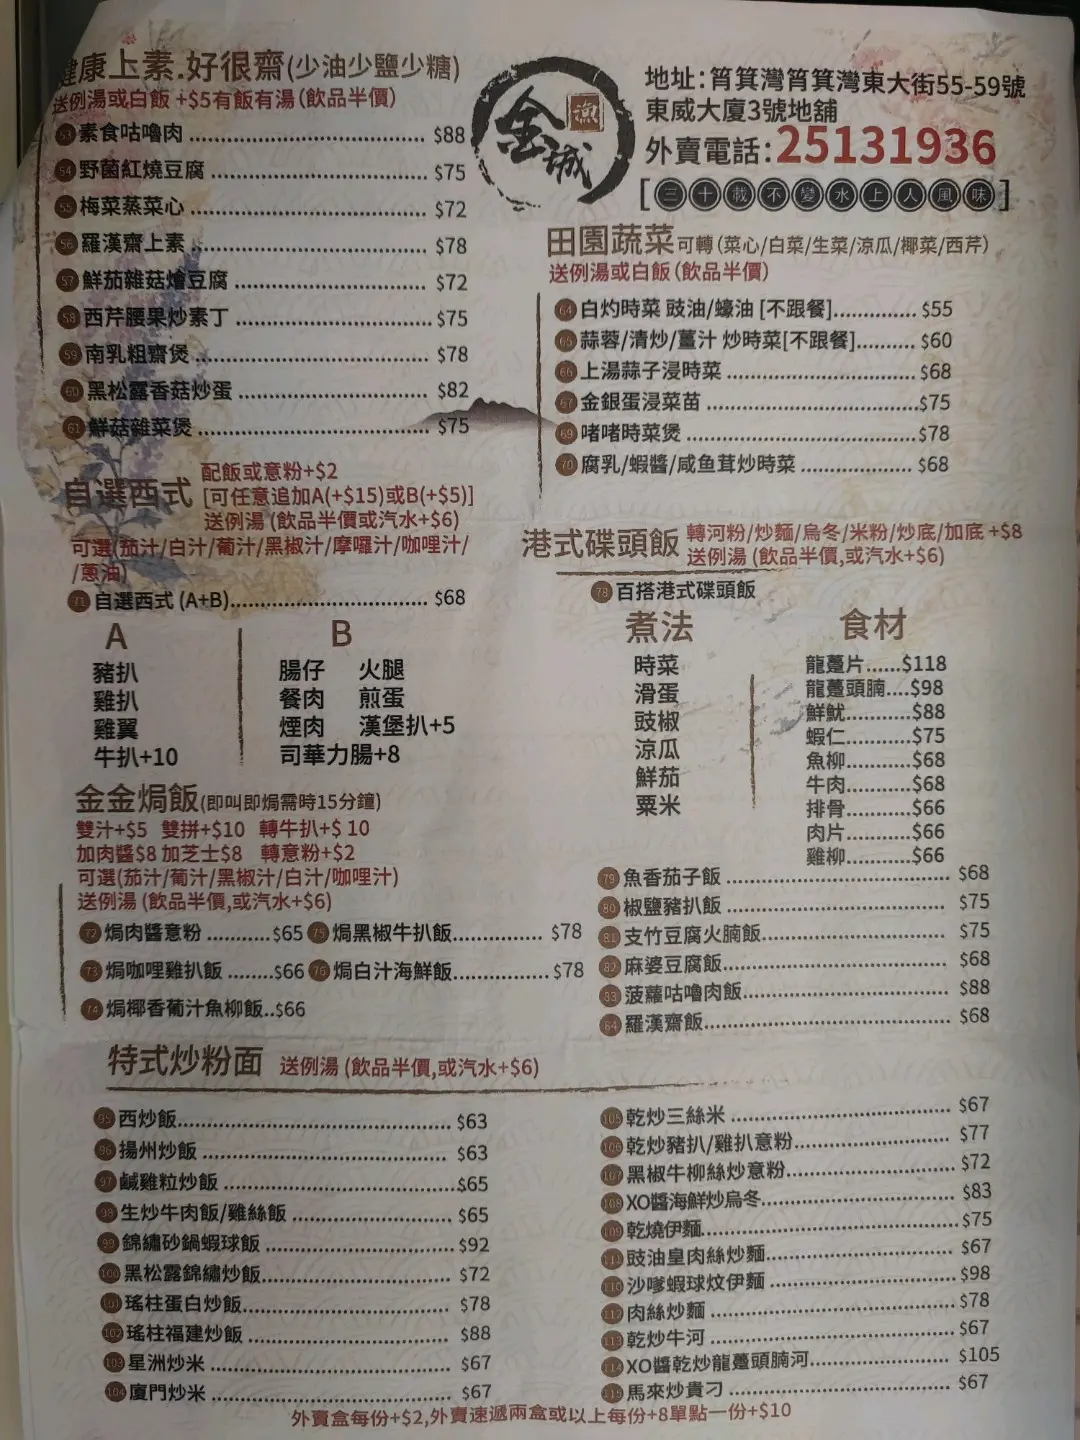 健康上素.好很齋(少油少鹽少糖)
送例湯或白飯 +$5有飯有湯(飲品半價)
53 素食咕嚕肉 $88
54 野菌紅燒豆腐 $75
55 梅菜蒸菜心 $72
56 羅漢齋上素 $78
57 鮮茄雜菇燴豆腐 $72
58 西芹腰果炒素丁 $75
59 南乳粗齋煲 $78
60 黑松露香菇炒蛋 $82
61 鮮菇雜菜煲 $75
金漁城
地址:筲箕灣筲箕灣東大街55-59號
東威大廈3號地舖
外賣電話:25131936
[三十載不變水上人風味]
田園蔬菜 可轉(菜心/白菜/生菜/涼瓜/椰菜/西芹)
送例湯或白飯(飲品半價)
64 白灼時菜 豉油/蠔油 [不跟餐] $55
65 蒜蓉/清炒/薑汁 炒時菜[不跟餐] $60
66 上湯蒜子浸時菜 $68
67 金銀蛋浸菜苗 $75
69 啫啫時菜煲 $78
70 腐乳/蝦醬/咸鱼茸炒時菜 $68
自選西式
配飯或意粉+$2
[可任意追加A(+$15)或B(+$5)]
送例湯 (飲品半價或汽水+$6)
可選(茄汁/白汁/葡汁/黑椒汁/摩囉汁/咖哩汁/
/蔥油)
71 自選西式 (A+B) $68
A
豬扒
雞扒
雞翼
牛扒+10
B
腸仔 火腿
餐肉 煎蛋
煙肉 漢堡扒+5
司華力腸+8
港式碟頭飯 轉河粉/炒麵/烏冬/米粉/炒底/加底 +$8
送例湯 (飲品半價,或汽水+$6)
78 百搭港式碟頭飯
煮法
時菜
滑蛋
豉椒
涼瓜
鮮茄
粟米
食材
龍躉片 $118
龍躉頭腩 $98
鮮魷 $88
蝦仁 $75
魚柳 $68
牛肉 $68
排骨 $66
肉片 $66
雞柳 $66
79 魚香茄子飯 $68
80 椒鹽豬扒飯 $75
81 支竹豆腐火腩飯 $75
82 麻婆豆腐飯 $68
83 菠蘿咕嚕肉飯 $88
84 羅漢齋飯 $68
金金焗飯(即叫即焗需時15分鐘)
雙汁+$5 雙拼+$10 轉牛扒+$ 10
加肉醬$8 加芝士$8 轉意粉+$2
可選(茄汁/葡汁/黑椒汁/白汁/咖哩汁)
送例湯 (飲品半價,或汽水+$6)
72 焗肉醬意粉 $65 75 焗黑椒牛扒飯 $78
73 焗咖哩雞扒飯 $66 76 焗白汁海鮮飯 $78
74 焗椰香葡汁魚柳飯..$66
特式炒粉面 送例湯 (飲品半價,或汽水+$6)
95 西炒飯 $63
96 揚州炒飯 $63
97 鹹雞粒炒飯 $65
98 生炒牛肉飯/雞絲飯 $65
99 錦繡砂鍋蝦球飯 $92
100 黑松露錦繡炒飯 $72
101 瑤柱蛋白炒飯 $78
102 瑤柱福建炒飯 $88
103 星洲炒米 $67
104 廈門炒米 $67
105 乾炒三絲米 $67
106 乾炒豬扒/雞扒意粉 $77
107 黑椒牛柳絲炒意粉 $72
108 XO醬海鮮炒烏冬 $83
109 乾燒伊麵 $75
111 豉油皇肉絲炒麵 $67
110 沙嗲蝦球炆伊麵 $98
112 肉絲炒麵 $78
113 乾炒牛河 $67
114 XO醬乾炒龍躉頭腩河 $105
115 馬來炒貴刁 $67
外賣盒每份+$2,外賣速遞兩盒或以上每份+8單點一份+$10